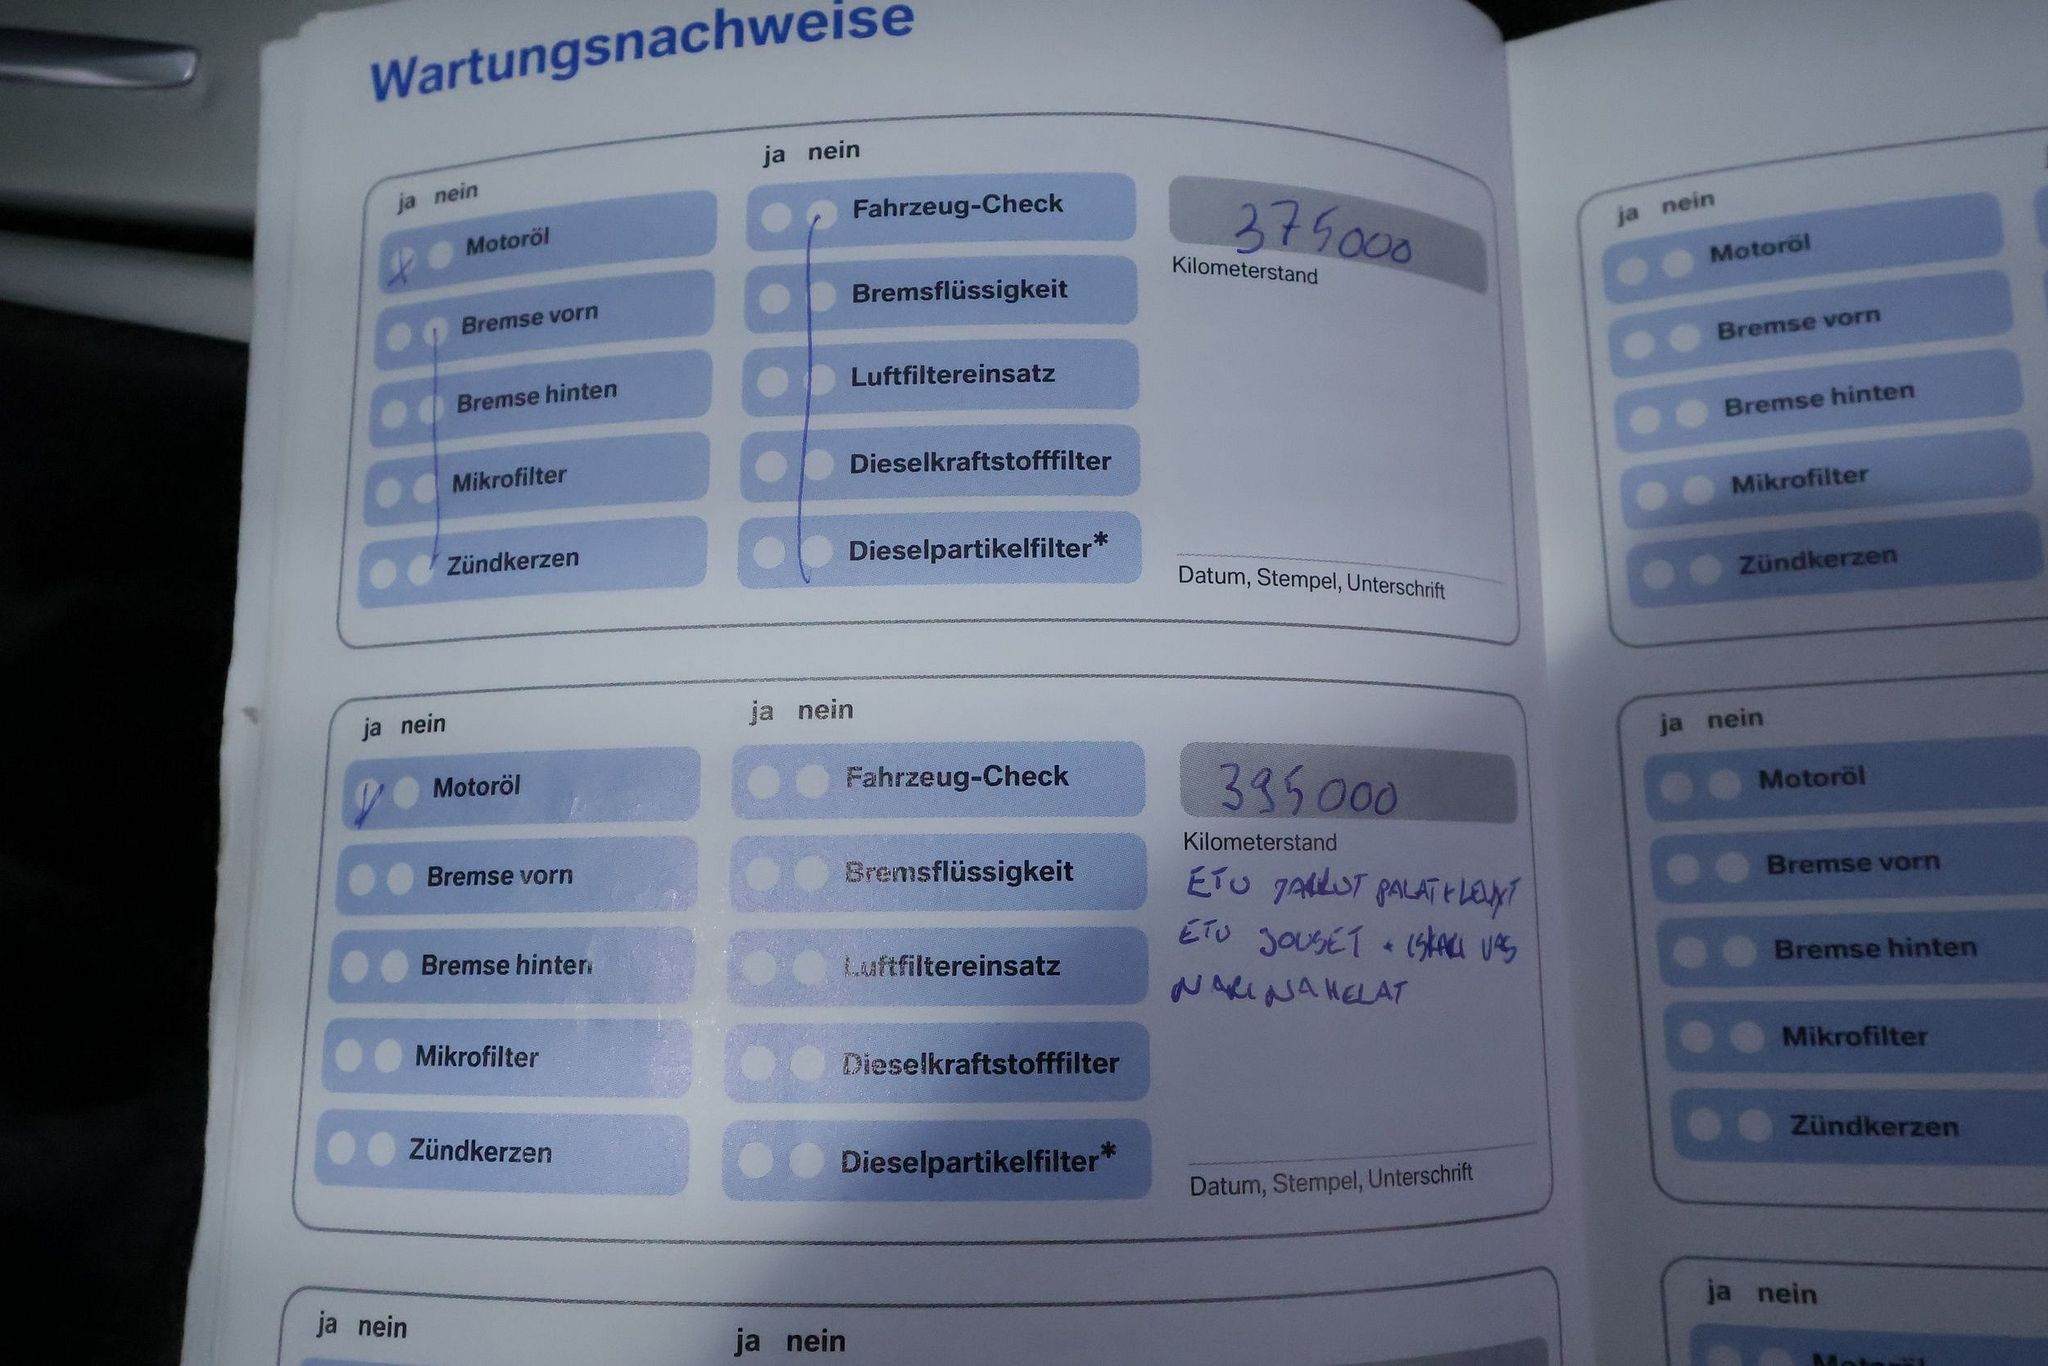 Wartungsnachweise
ja nein
Motoröl
Bremse vorn
Bremse hinten
Mikrofilter
Zündkerzen
ja nein
Fahrzeug-Check
Bremsflüssigkeit
Luftfiltereinsatz
Dieselkraftstofffilter
Dieselpartikelfilter*
375000
Kilometerstand
Datum, Stempel, Unterschrift
ja nein
Motoröl
Bremse vorn
Bremse hinten
Mikrofilter
Zündkerzen
ja nein
Fahrzeug-Check
Bremsflüssigkeit
Luftfiltereinsatz
Dieselkraftstofffilter
Dieselpartikelfilter*
395000
Kilometerstand
ETU JARRUT PALAT+LEVYT
ETU JOUSET + ISKARI
Datum, Stempel, Unterschrift
ja nein
ja nein
ja nein
Motoröl
Bremse vorn
Bremse hinten
Mikrofilter
Zündkerzen
ja nein
Motoröl
Bremse vorn
Bremse hinten
Mikrofilter
Zündkerzen
ja nein
Motoröl